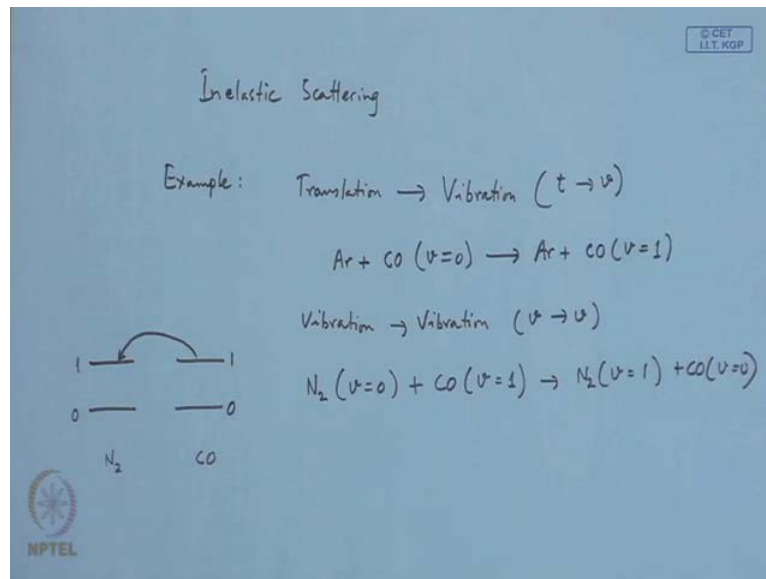 © CET
I.I.T. KGP
Inelastic Scattering
Example: Translation → Vibration (t → v)
Ar + CO (v=0) → Ar + CO (v=1)
Vibration → Vibration (v → v)
N₂ (v=0) + CO (v=1) → N₂ (v=1) + CO (v=0)
1 1
0 0
N₂ CO
NPTEL